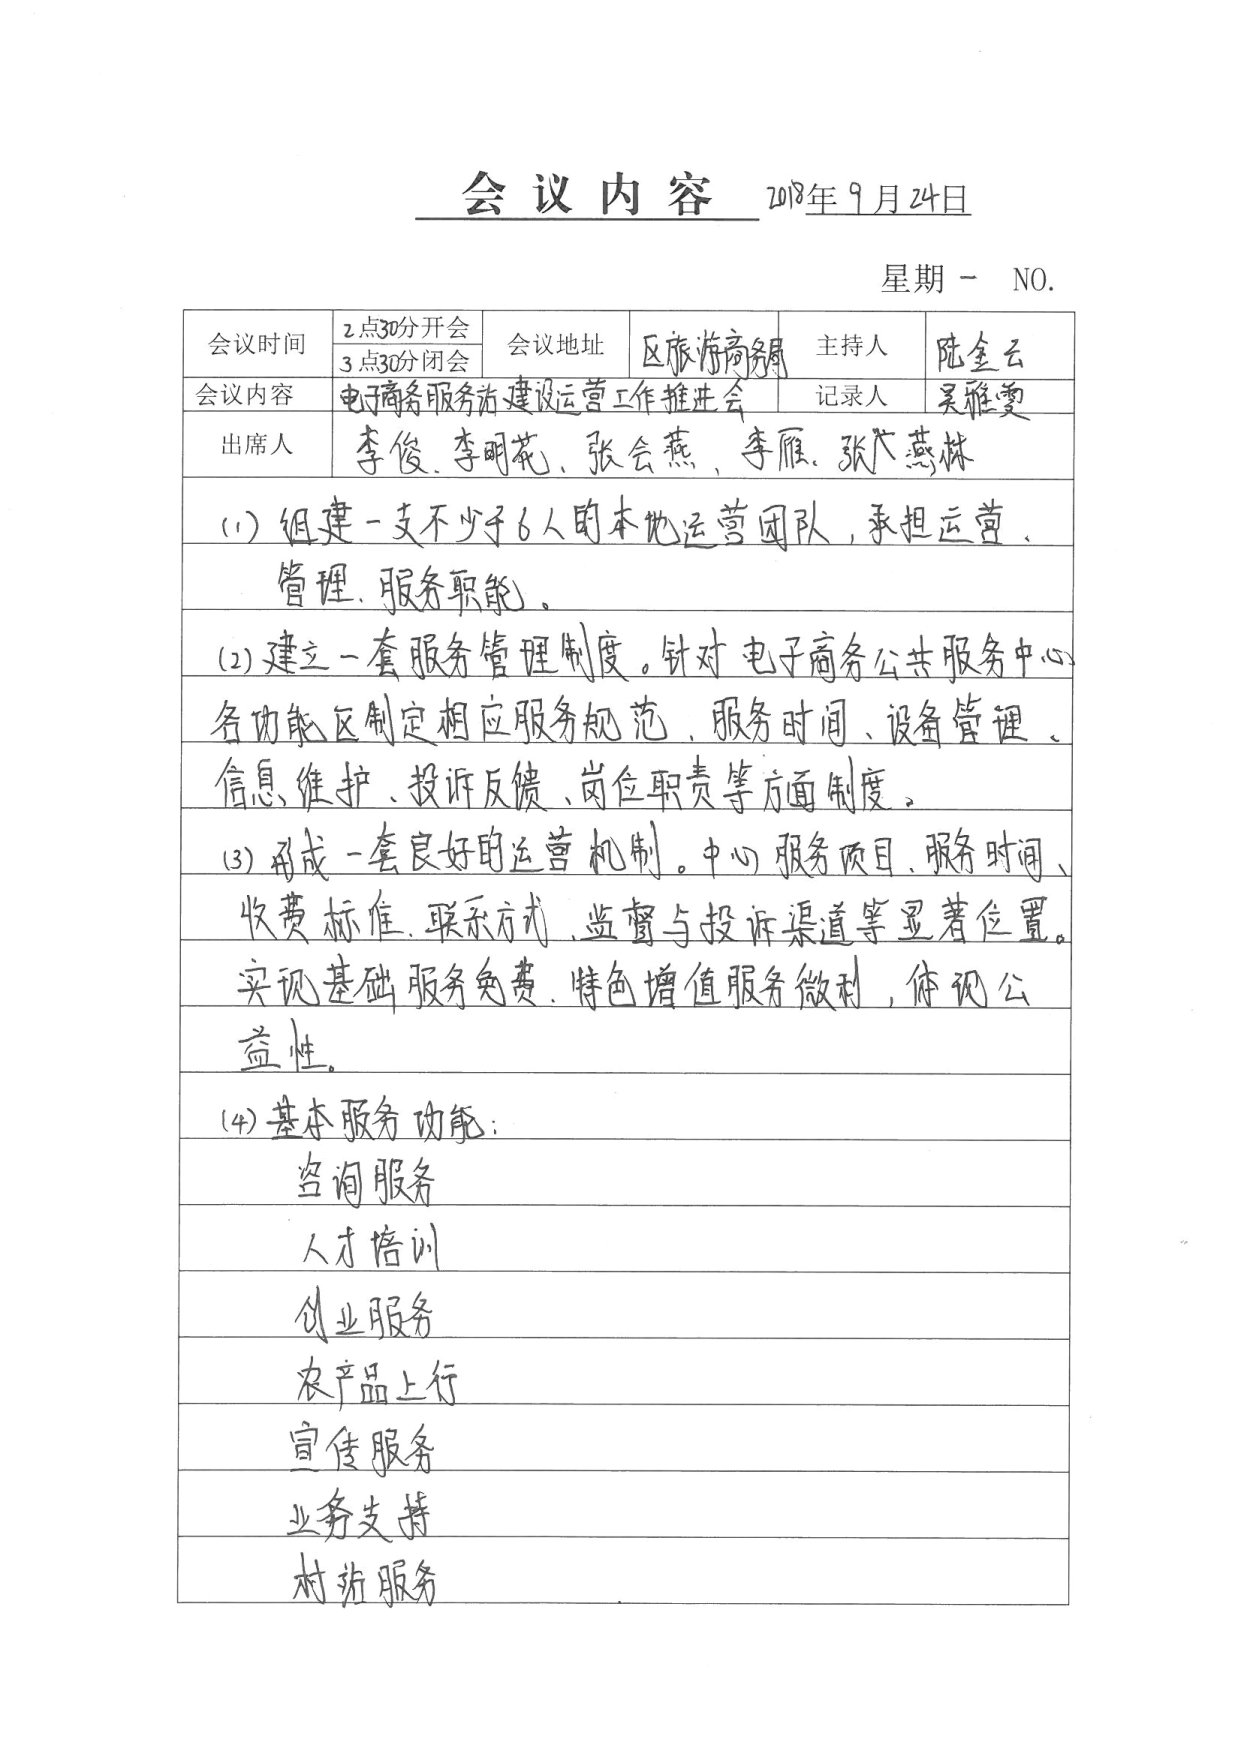 会议内容 2018年9月24日
星期一 NO.
会议时间 2点30分开会 会议地址 区旅游商务局 主持人 陆金云
3点30分闭会
会议内容 电子商务服务站建设运营工作推进会 记录人 吴雅雯
出席人 李俊、李明花、张会燕、李雁、张 燕林
(1) 组建一支不少于6人的本地运营团队,承担运营、
管理、服务职能。
(2)建立一套服务管理制度。针对电子商务公共服务中心
各功能区制定相应服务规范、服务时间、设备管理、
信息维护、投诉反馈、岗位职责等方面制度。
(3)形成一套良好的运营机制。中心服务项目、服务时间、
收费标准、联系方式、监督与投诉渠道等显著位置。
实现基础服务免费、特色增值服务微利,体现公
益性。
(4)基本服务功能:
咨询服务
人才培训
创业服务
农产品上行
宣传服务
业务支持
村站服务